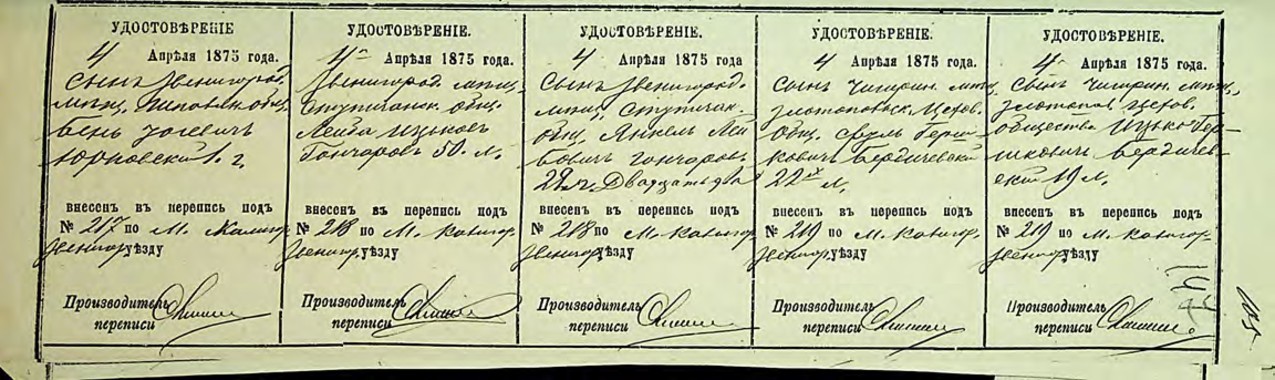 УДОСТОВѢРЕНІЕ
4 Апрѣля 1875 года.
сынъ звенигород.
мѣщ. общ.
Бень
1. г.
внесенъ въ перепись подъ
№ 217 по М.
звенигор. уѣзду
Производитель
переписи
УДОСТОВѢРЕНІЕ.
4 Апрѣля 1875 года.
звенигород. мѣщ.
общ.
Лейба Ицьковъ
Гончаровъ 50. л.
внесенъ въ перепись подъ
№ 218 по М. Колигор.
звенигор. уѣзду
Производитель
переписи
УДОСТОВѢРЕНІЕ.
4 Апрѣля 1875 года
сынъ звенигород.
мѣщ.
общ. Янкель Лей
бовичъ гончаровъ
22 л. Двадцать два
внесенъ въ перепись подъ
№ 218 по М. Колигор.
звенигор. уѣзду
Производитель
переписи
УДОСТОВѢРЕНІЕ.
4 Апрѣля 1875 года
сынъ чигирин. мѣщ.
златопольск.
общ. сруль Герш
ковичъ Бердичевскій
22 л.
внесенъ въ перепись подъ
№ 219 по М. Колигор.
звенигор. уѣзду
Производитель
переписи
УДОСТОВѢРЕНІЕ.
4 Апрѣля 1875 года.
сынъ чигирин. мѣщ.
златопол.
общества Ицько Гер-
шковичъ Бердичев-
скій 19 л.
внесенъ въ перепись подъ
№ 219 по М. Колигор.
звенигор. уѣзду
Производитель
переписи